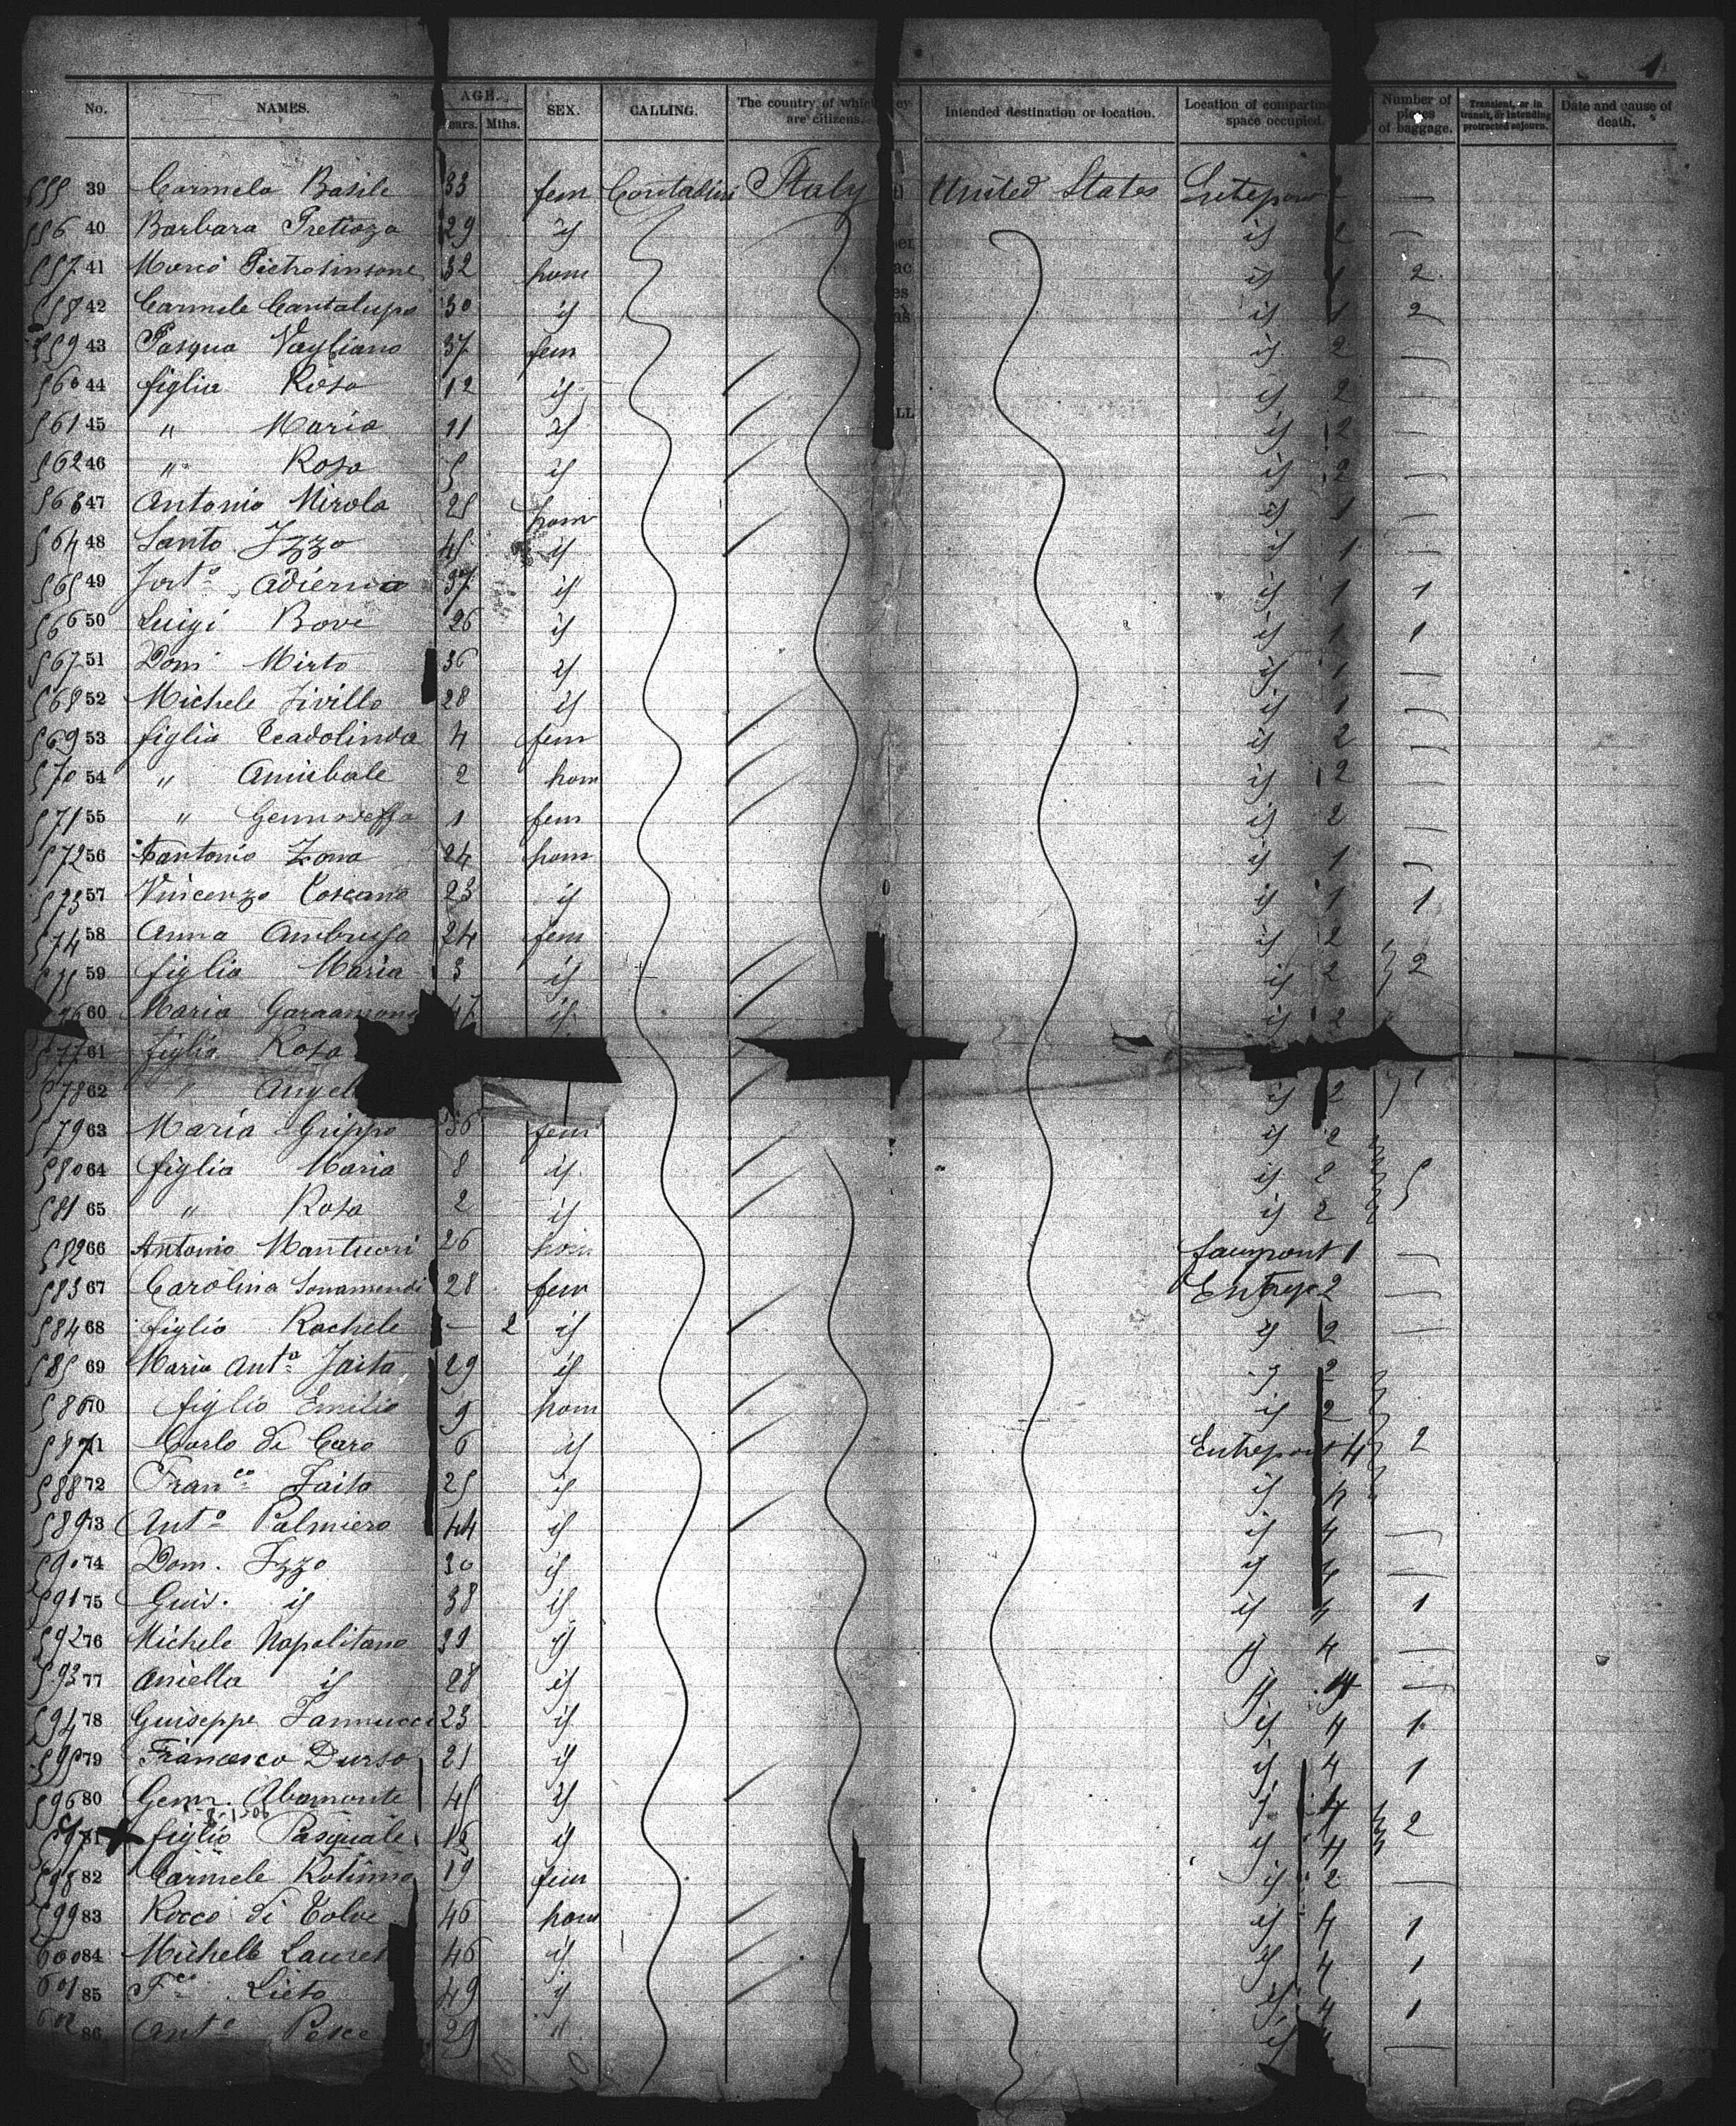 1
No. NAMES. AGE. Years. Mths. SEX. CALLING. The country of which they are citizens. Intended destination or location. Location of compartment space occupied. Number of pieces of baggage. Transient, or in transit, or intending protracted sojourn. Date and cause of death.
555 39 Carmela Basile 33 fem Contadini Italy United States —
556 40 Barbara 29 id id 2 —
557 41 Marco 32 hom id 1 2
558 42 Carmele Cantalupo 30 id id 1 2
559 43 Pasqua Vagliano 37 fem id 2 —
560 44 figlia Rosa 12 id id 2 —
561 45 " Maria 11 id id 2 —
562 46 " Rosa 5 id id 2 —
563 47 Antonio Mirola 25 hom id 1 —
564 48 Santo Izzo 45 id id 1 —
565 49 37 id id 1 1
566 50 Luigi Bove 26 id id 1 1
567 51 Dom Mirto 36 id id 1 —
568 52 Michele 28 id id 1 —
569 53 figlia 4 fem id 2 —
570 54 " Annibale 2 hom id 2 —
571 55 " 1 fem id 2 —
572 56 Zona 24 hom id 1 —
573 57 Vincenzo Toscano 23 id id 1 1
574 58 Anna 24 fem id 2
575 59 figlia Maria 3 id id 2 2
576 60 Maria 47 id id 2
577 61 figlia Rosa
578 62 " Angel id 2 1
579 63 Maria Grippo 36 fem id 2
580 64 figlia Maria 8 id id 2 5
581 65 " Rosa 2 id id 2
582 66 Antonio Mantuori 26 hom 1 —
583 67 Carolina 28 fem Entrep 2 —
584 68 figlia Rachele — 2 id id 2 —
585 69 Maria Anta Jaita 29 id id 2
586 70 figlio Emilio 9 hom id 2
587 71 Carlo di Caro 6 id Entrepont 4 2
588 72 Franco Jaita 25 id id 4
589 73 Anto Palmiero 44 id id 4 —
590 74 Dom. Izzo 30 id id 4 —
591 75 Guis. id 38 id id 4 1
592 76 Michele Napolitano 39 id id 4 —
593 77 Aniella id 28 id id 4 —
594 78 Guiseppe Iannucci 23 id id 4 1
595 79 Francesco Durso 21 id id 4 1
596 80 Genn. Abamonte 45 id id 4
597 81 figlio Pasquale 16 id id 4 2
598 82 Carmele 19 fem id 2 —
599 83 Rocco di Tolve 46 hom id 4 1
600 84 Michele 46 id id 4 1
601 85 Fco Lieto 49 id id 4 1
602 86 Anto Pesce 29 " id —